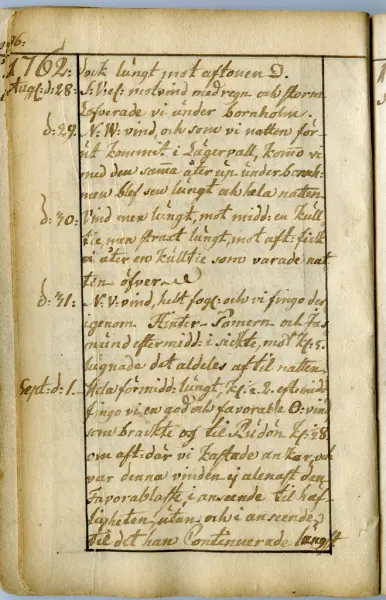 1762: dock lungt mot aftonen O.
Aug: d: 28: S:V: motvind med regn och storm
laverade vi under bornholm.
d: 29. N:W: vind, och som vi natten för-
ut kommit i Lägervall, komo vi
med den sama åter up under bornh:
men blef sen lungt ack hela natten
d: 30: Vind men lungt, mot midd: en kull
tie men straxt lungt, mot aft: fick
vi åter en kulltie som varade nat
ten öfver
d: 31: N:V: vind, helt fog: och vi fingo der
igenom Hinter-Pomern och Jas
mund eftermidd: i sickte, mot Kl: 5.
lugnade det aldeles af til natten
Sept: d: 1. Hela förmidd: lungt, Kl: 2. eft: midd
fingo vi en god och favorable O: vind
som brackte oss til Rudön Kl: 8
om aft: där vi kastade ankar, och
var denna vinden ej alenast den
favorablaste, i anseende til häf-
tigheten, utan och i anseende
til det han Continuerade längst